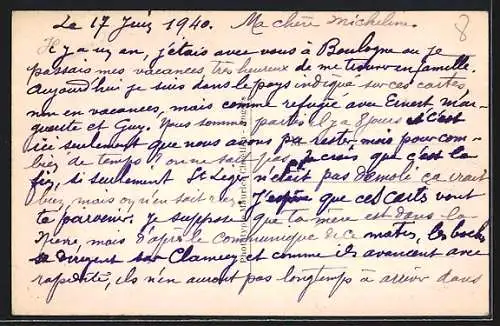 Le 17 Juin 1940. Ma chère Micheline. 8
Il y a un an, j'étais avec vous à Boulogne ou je
passais mes vacances, très heureux de me trouver en famille.
Aujourd'hui je suis dans le pays indiqué sur ces cartes,
non en vacances, mais comme refugié avec Ernest Mar-
guerite et Guy. Nous sommes partis il y a 8 jours et c'est
ici seulement que nous avons pu rester, mais pour com-
bien de temps? on ne sait pas, je crois que c'est la
fin, si seulement St Leger n'était pas démoli ça irait
bien, mais on n'en sait rien. J'espère que ces cartes vont
te parvenir. Je suppose que ta mère est dans la
Nièvre, mais d'après le communiqué de ce matin, les boches
se dirigent sur Clamecy et comme ils avancent avec
rapidité, ils n'en auront pas longtemps à arriver dans